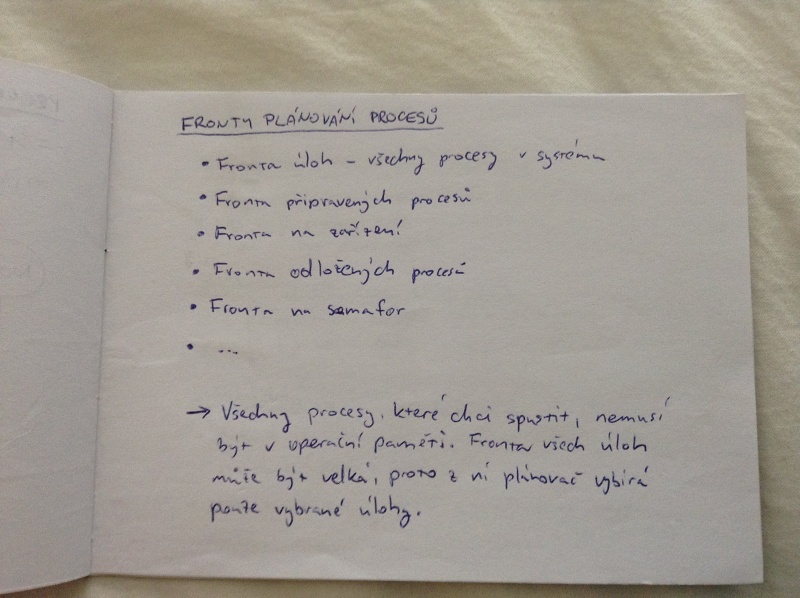 FRONTY PLÁNOVÁNÍ PROCESŮ
• Fronta úloh – všechny procesy v systému
• Fronta připravených procesů
• Fronta na zařízení
• Fronta odložených procesů
• Fronta na semafor
• ...
→ Všechny procesy, které chci spustit, nemusí
být v operační paměti. Fronta všech úloh
může být velká, proto z ní plánovač vybírá
pouze vybrané úlohy.